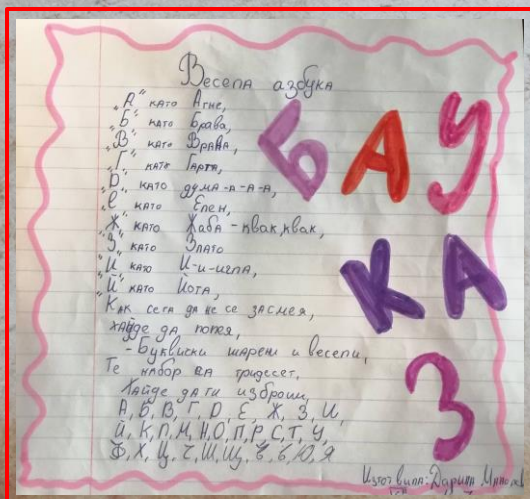 Весела азбука
„А“ като Агне,
„Б“ като Брава,
„В“ като Врана,
„Г“ като
като дума-а-а-а,
„Е“ като Елен,
„Ж“ като Жаба - квак, квак,
„З“ като Злато
„И“ като И-и-игла,
„Й“ като Йога,
Как сега да не се засмея,
хайде да попея,
- Буквички шарени и весели,
Те набор са тридесет,
Хайде да ги изброим,
А, Б, В, Г, D, Е, Ж, З, И,
Й, К, Л, М, Н, О, П, Р, С, Т, У,
Ф, Х, Ц, Ч, Ш, Щ, Ъ, Ь, Ю, Я
Б А У
К А
З
Изготвила: Дарина